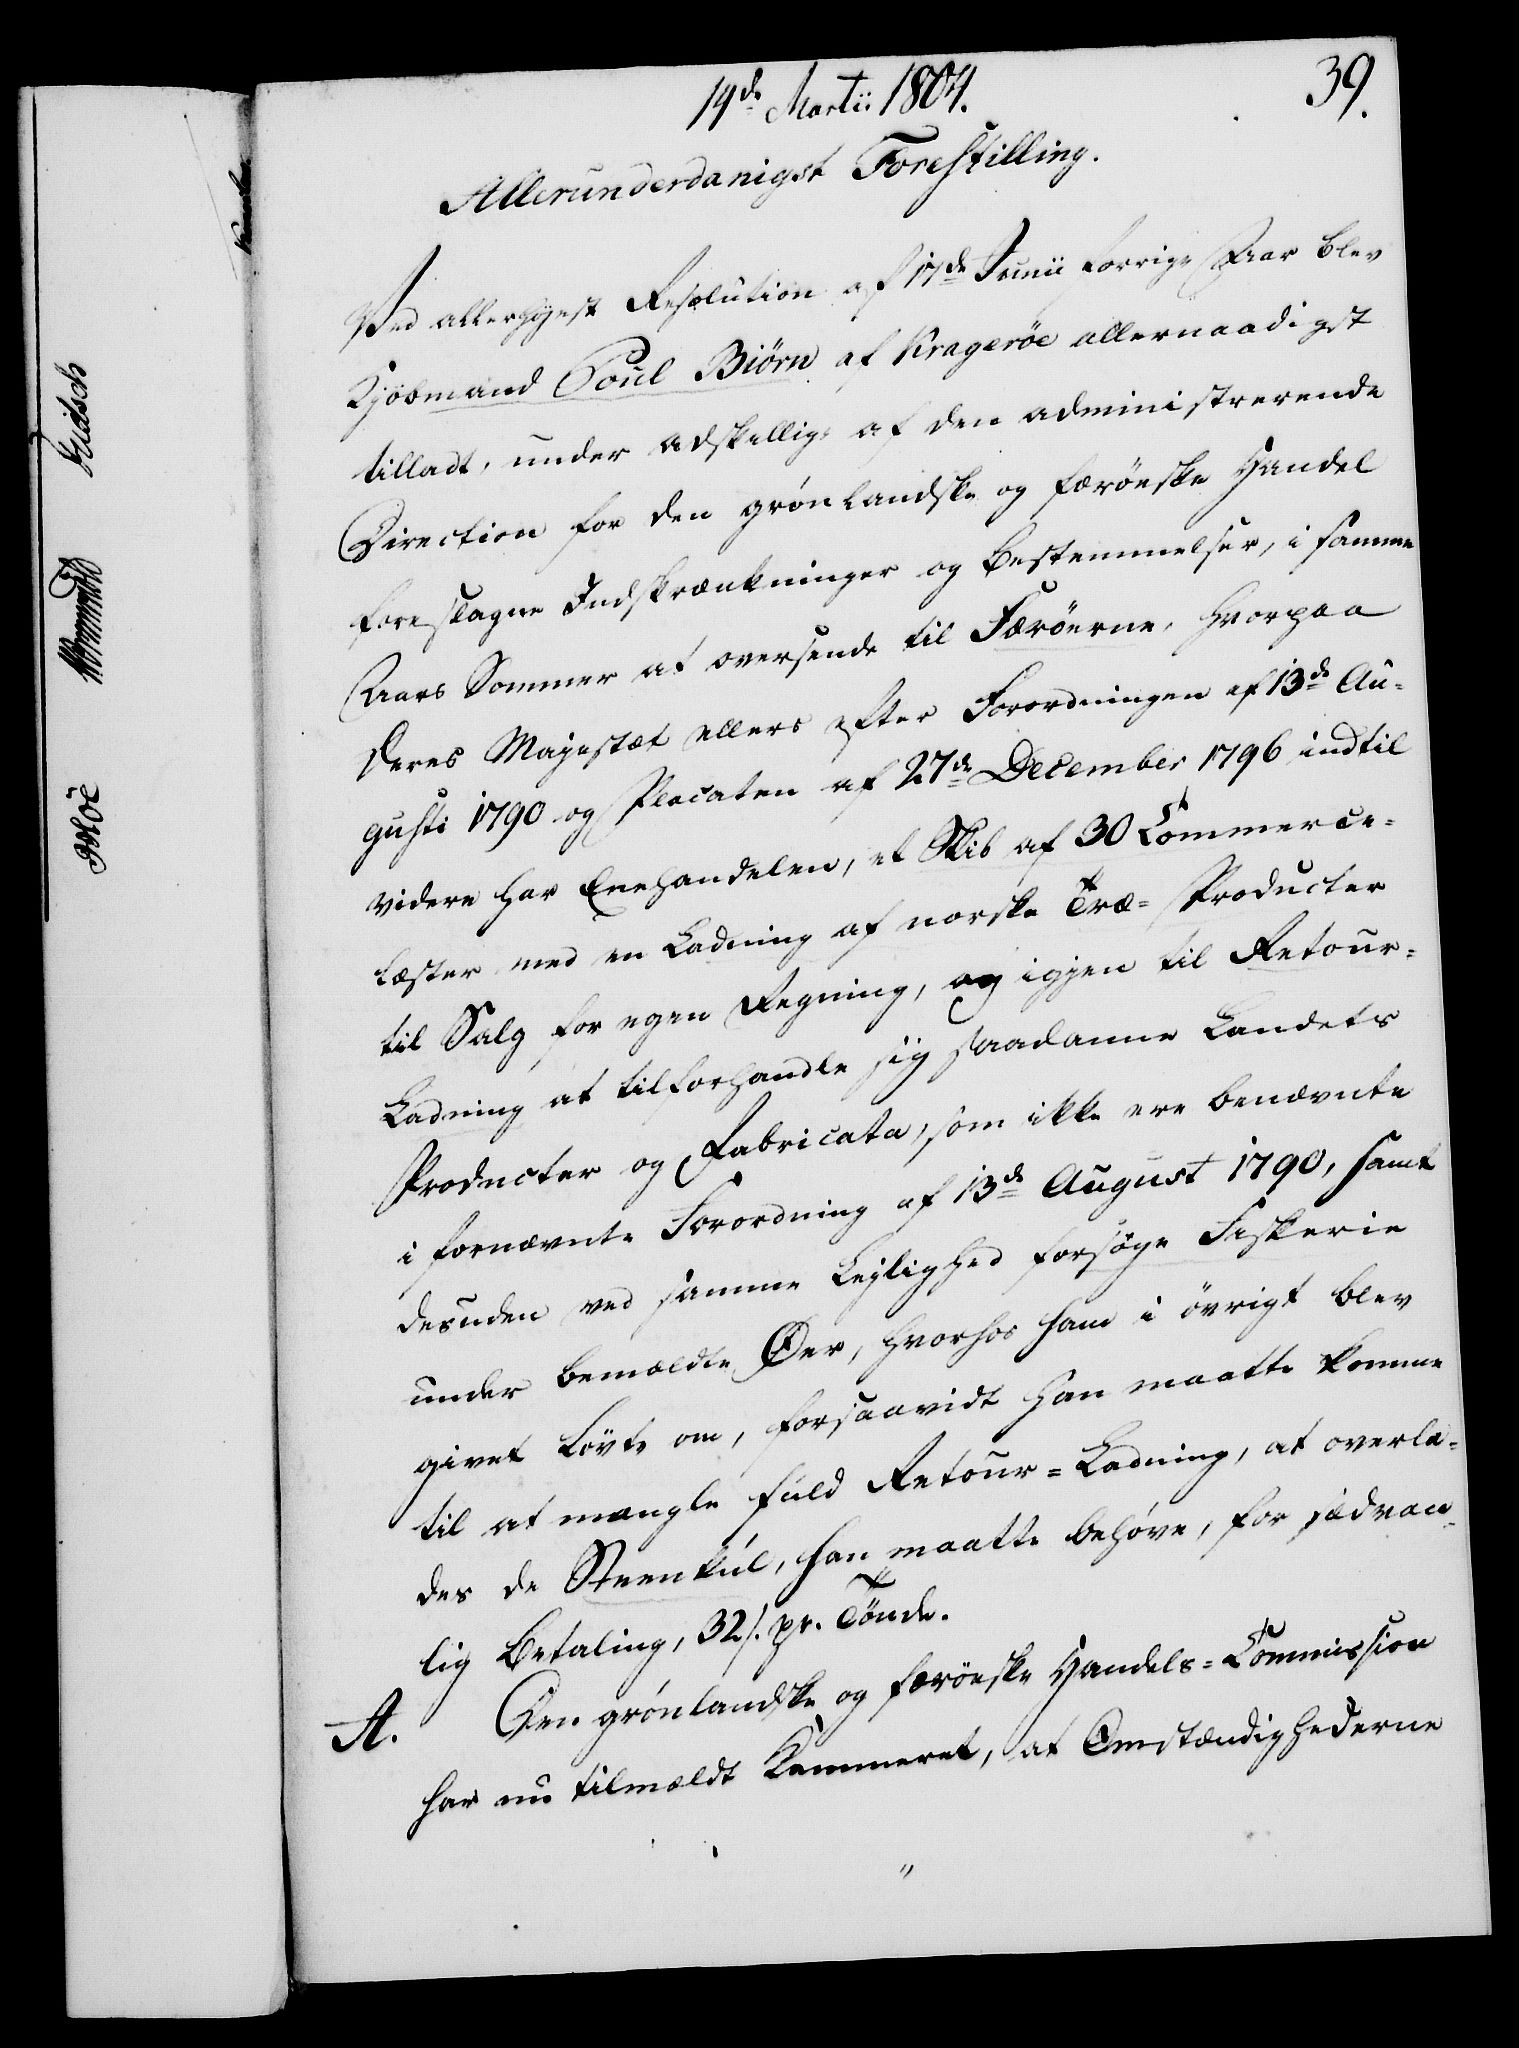 19de Martii 1804.
39.
Allerunderdanigst Forestilling.
Ved allerhøjest Resolution af 17de Junii forrige Aar blev
Kjöbmand Poul Biörn af Kragerøe allernaadigst
tilladt, under adskellige af den administrerende
Direction for den grønlandske og færöeske Handel
foreslagne Indskrænkninger og Bestemmelser, i samme
Aars Sommer at oversende til Færöerne, hvorpaa
Deres Majestæt ellers efter Forordningen af 13de Au=
gusti 1790 og Placaten af 27de December 1796 indtil
videre har Enehandelen, et Skib af 30 Commerce=
læster med en Ladning af norske Træ=Producter
til Salg for egen Regning, og igjen til Retour=
Ladning at tilforhandle sig saadanne Landets
Producter og Fabricata, som ikke ere benævnte
i fornævnte Forordning af 13de August 1790, samt
desuden ved samme Lejlighed forsøge Fiskerie
under bemældte Øer, hvorhos ham i övrigt blev
givet Løvte om, forsaavidt han maatte komme
til at mangle fuld Retour=Ladning, at overla=
des de Steenkul, han maatte behøve, for sædvan=
lig Betaling, 32 s. pr. Tönde.
A. Den grønlandske og færöeske Handels=Commission
har nu tilmældt Kammeret, at Omstændighederne